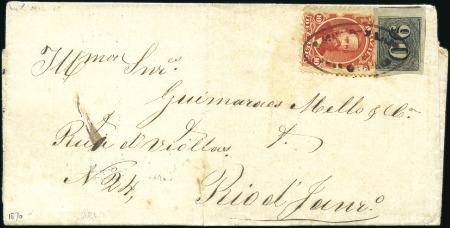 Illmos Snres.
Guimaraes Mello & Ca
Rua d'Violas
N 24,
Rio d' Janro.
1870
90
10